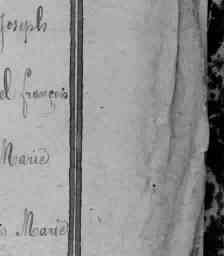 Joseph
el françois
Marie
is Marie